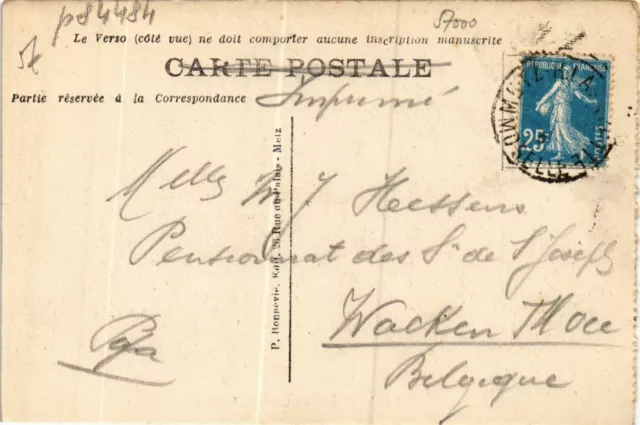 p84484
57000
Le Verso (côté vue) ne doit comporter aucune inscription manuscrite
CARTE POSTALE
Partie réservée à la Correspondance
Imprimé
REPUBLIQUE FRANÇAISE
25c
POSTES
P. Bonnevie, Edit. 26 Rue du Palais - Metz
Melles J Heessens
Pensionnat des Srs de St Joseph
Wacken Floee
Belgique
Papa